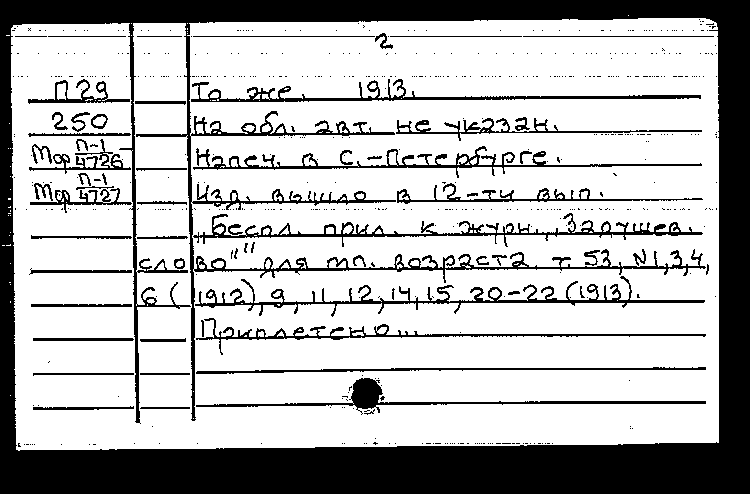 2
П29 То же. 1913.
250 На обл. авт. не указан.
Мор П-1/4726 Напеч. в С.-Петербурге.
Мор П-1/4727 Изд. вышло в 12-ти вып.
„Беспл. прил. к журн. „Задушев.
слово"" для мл. возраста т. 53, N1,3,4,
6 (1912), 9, 11, 12, 14, 15, 20-22 (1913).
Приплетено...